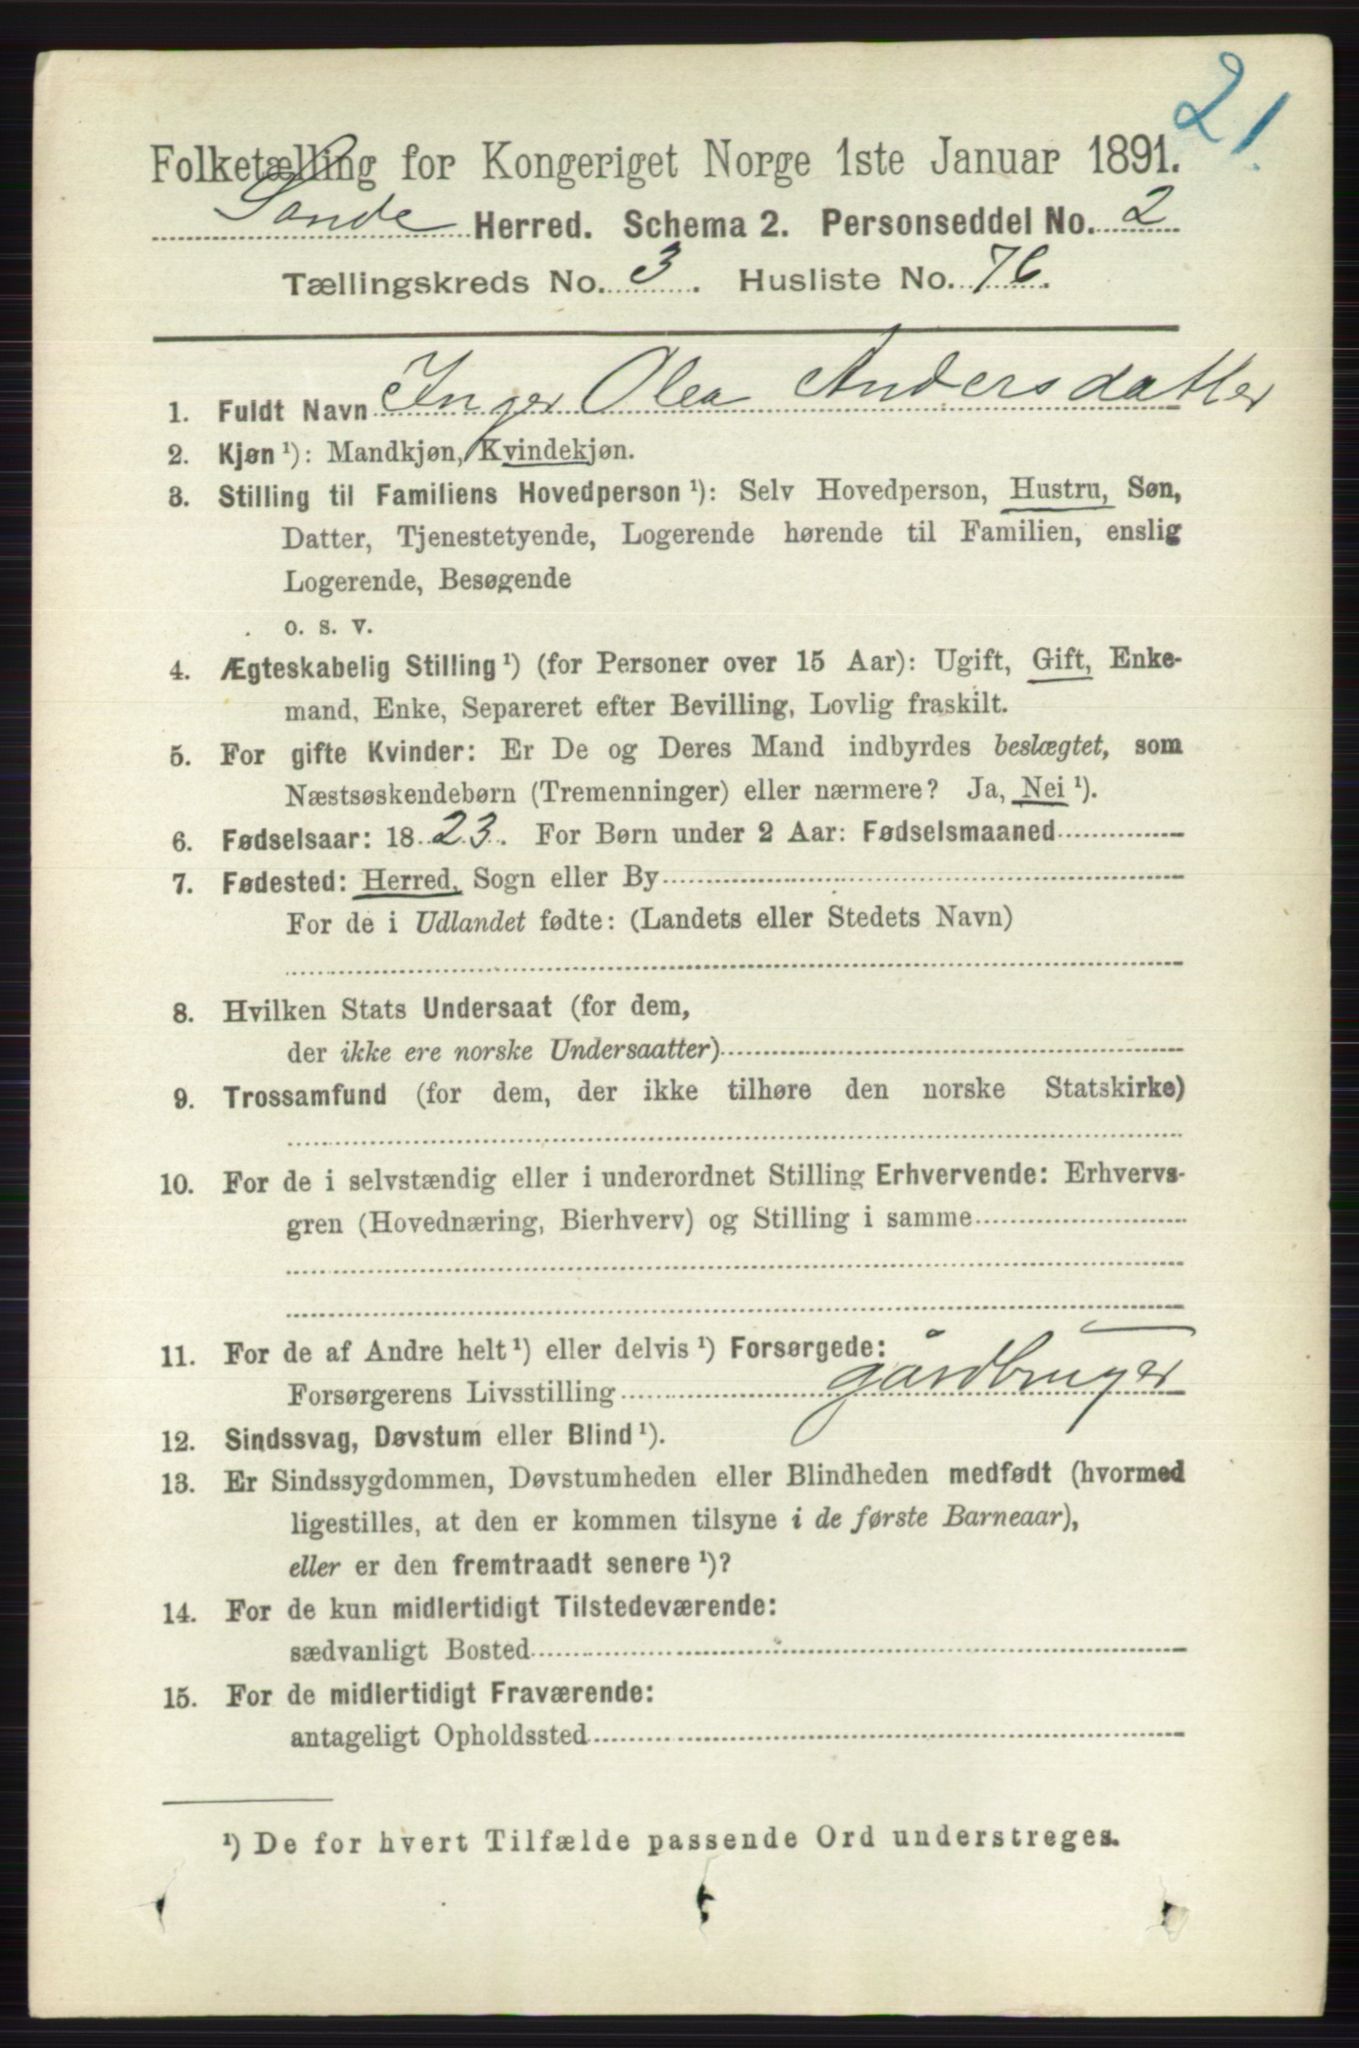 21.
Folketælling for Kongeriget Norge 1ste Januar 1891.
Sande Herred. Schema 2. Personseddel No. 2
Tællingskreds No. 3. Husliste No. 76.
1. Fuldt Navn Inger Olea Andersdatter
2. Kjøn ¹): Mandkjøn, Kvindekjøn.
3. Stilling til Familiens Hovedperson ¹): Selv Hovedperson, Hustru, Søn,
Datter, Tjenestetyende, Logerende hørende til Familien, enslig
Logerende, Besøgende
o. s. v.
4. Ægteskabelig Stilling ¹) (for Personer over 15 Aar): Ugift, Gift, Enke-
mand, Enke, Separeret efter Bevilling, Lovlig fraskilt.
5. For gifte Kvinder: Er De og Deres Mand indbyrdes beslægtet, som
Næstsøskendebørn (Tremenninger) eller nærmere? Ja, Nei ¹).
6. Fødselsaar: 1823. For Børn under 2 Aar: Fødselsmaaned
7. Fødested: Herred, Sogn eller By
For de i Udlandet fødte: (Landets eller Stedets Navn)
8. Hvilken Stats Undersaat (for dem,
der ikke ere norske Undersaatter)
9. Trossamfund (for dem, der ikke tilhøre den norske Statskirke)
10. For de i selvstændig eller i underordnet Stilling Erhvervende: Erhvervs-
gren (Hovednæring, Bierhverv) og Stilling i samme
11. For de af Andre helt ¹) eller delvis ¹) Forsørgede:
Forsørgerens Livsstilling gårdbruger
12. Sindssvag, Døvstum eller Blind ¹).
13. Er Sindssygdommen, Døvstumheden eller Blindheden medfødt (hvormed
ligestilles, at den er kommen tilsyne i de første Barneaar),
eller er den fremtraadt senere ¹)?
14. For de kun midlertidigt Tilstedeværende:
sædvanligt Bosted
15. For de midlertidigt Fraværende:
antageligt Opholdssted
¹) De for hvert Tilfælde passende Ord understreges.